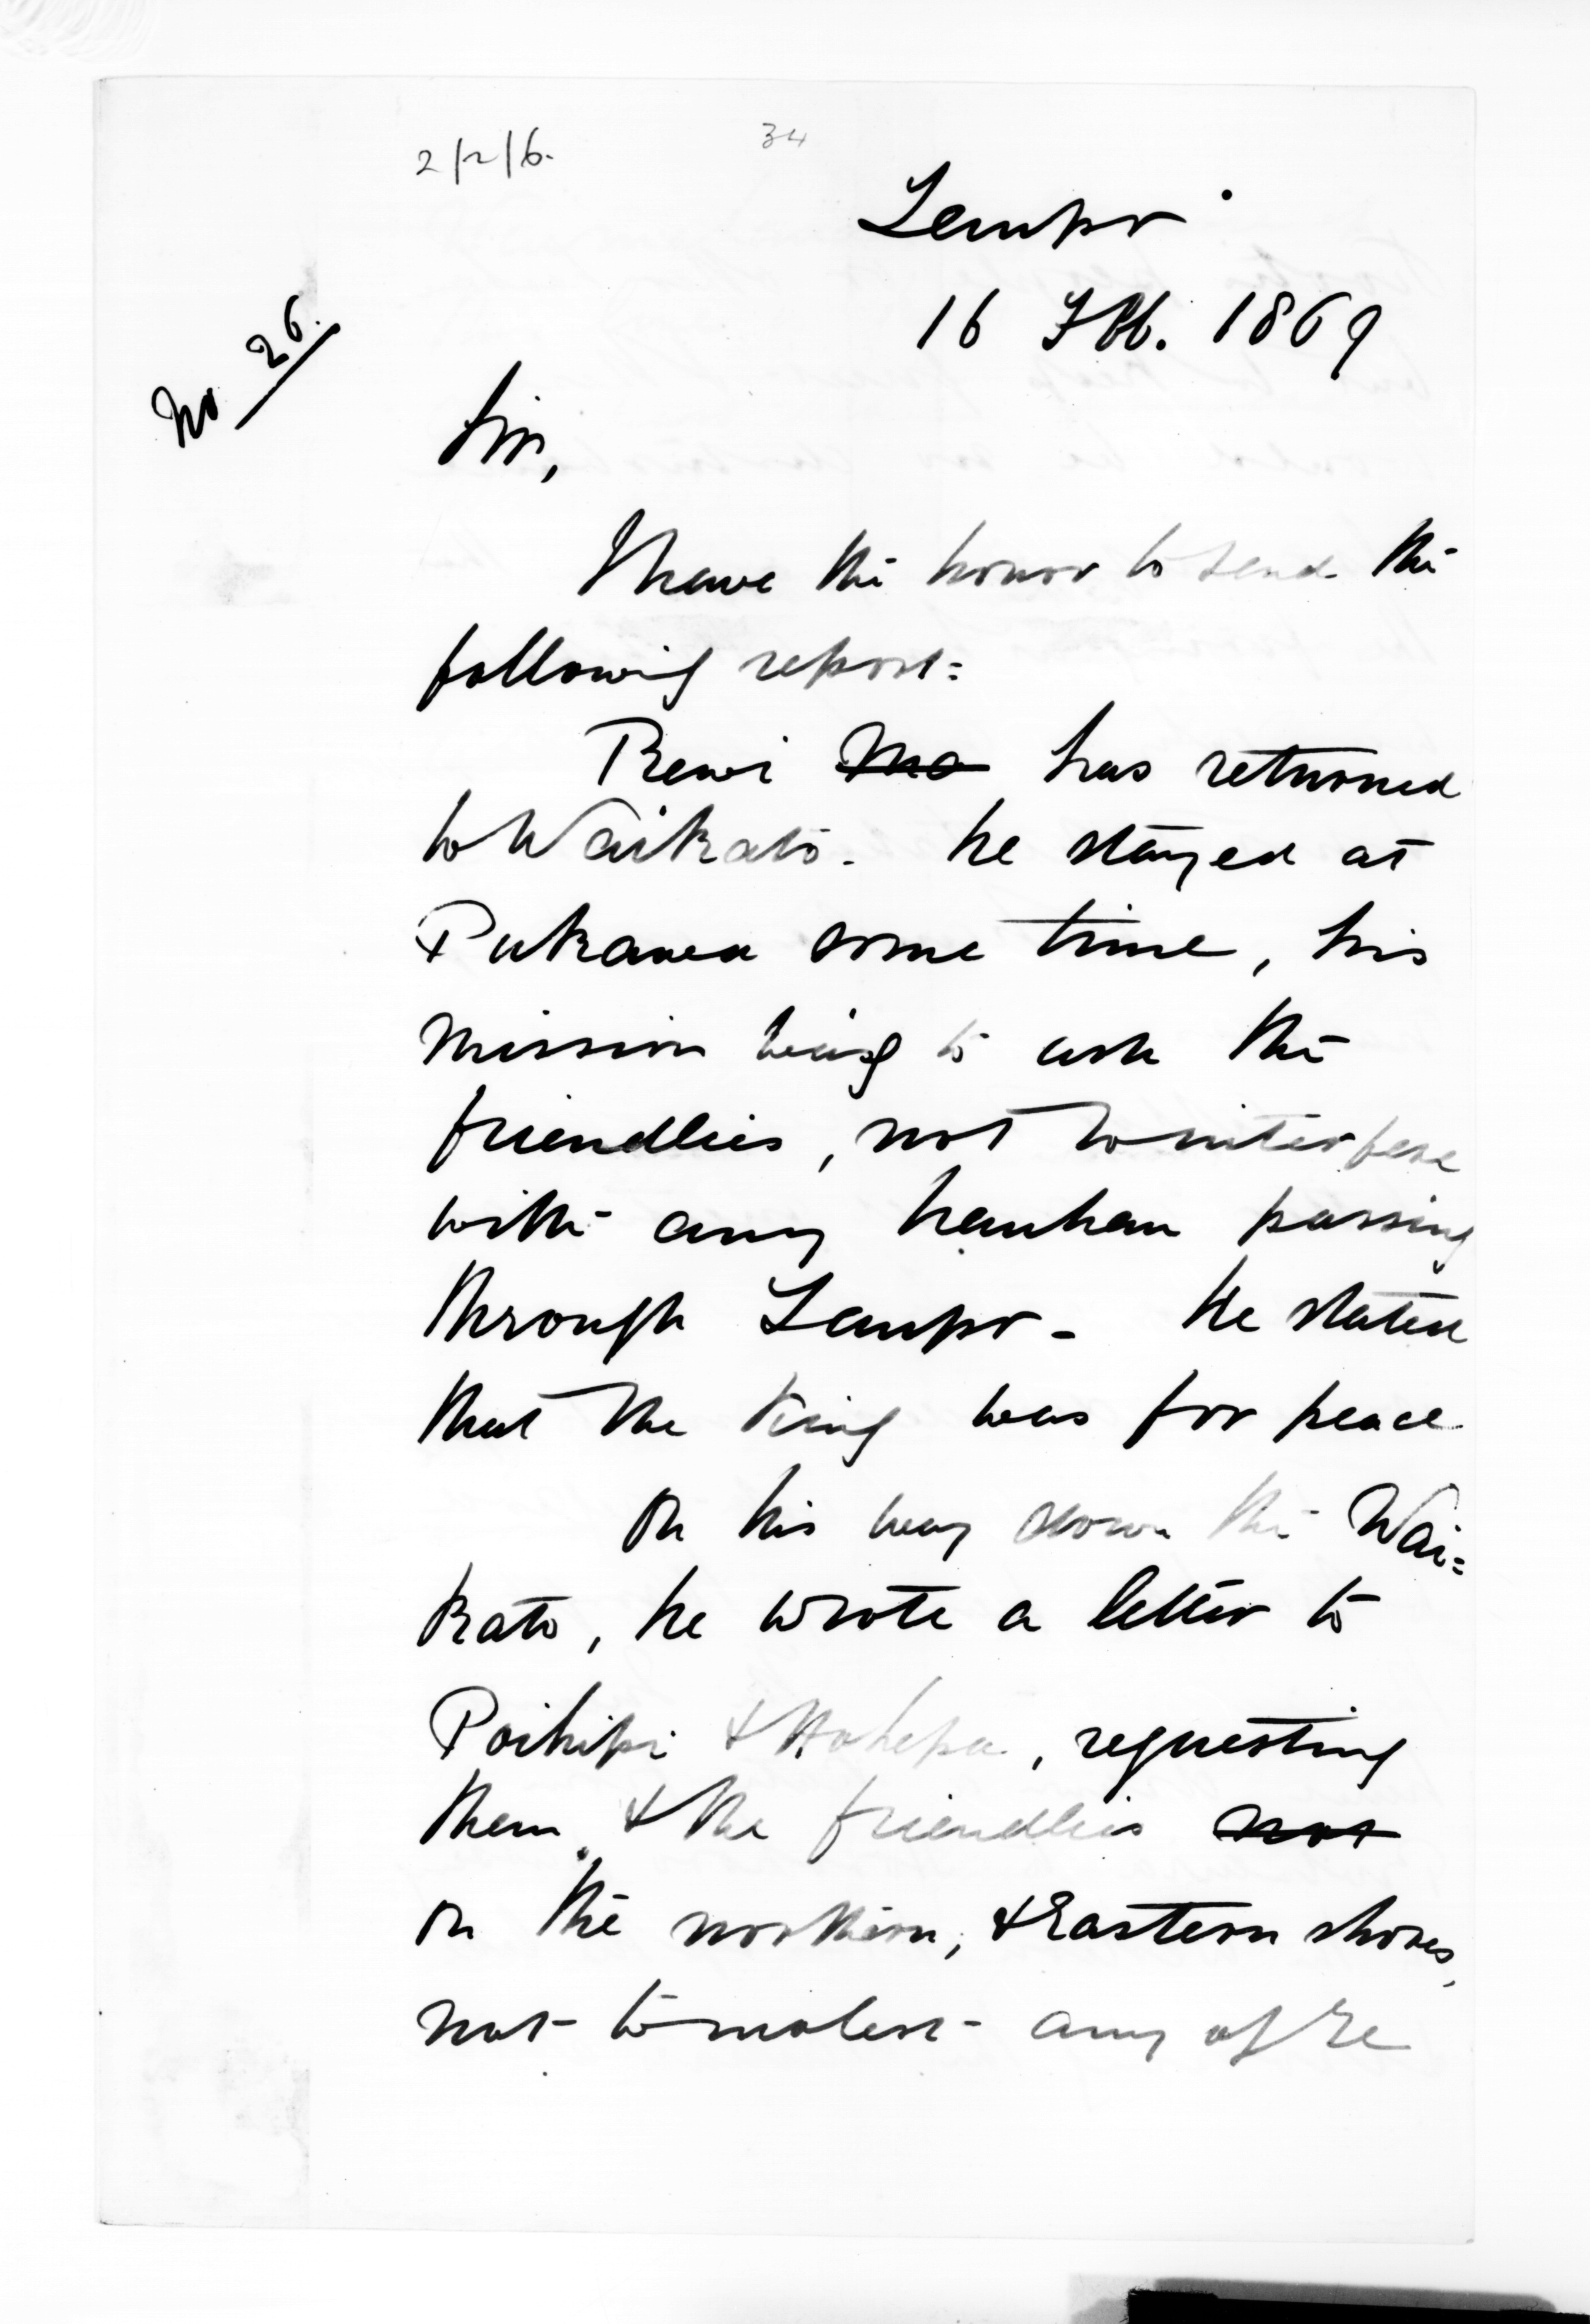 2/2/6.
34
Taupo
16 Feb. 1869
No 26.
Sir,
I have the honor to send the
following report:
Rewi Ma has returned
to Waikato. he stayed at
Pukawa some time, his
mission being to ask the
friendlies, not to interfere
with any hauhau passing
through Taupo - He stated
that the King was for peace
On his way down the Wai=
kato, he wrote a letter to
Poihipi & Hohepa, requesting
them, & the friendlies not
on the northern, & Eastern shores,
not to molest any of Te